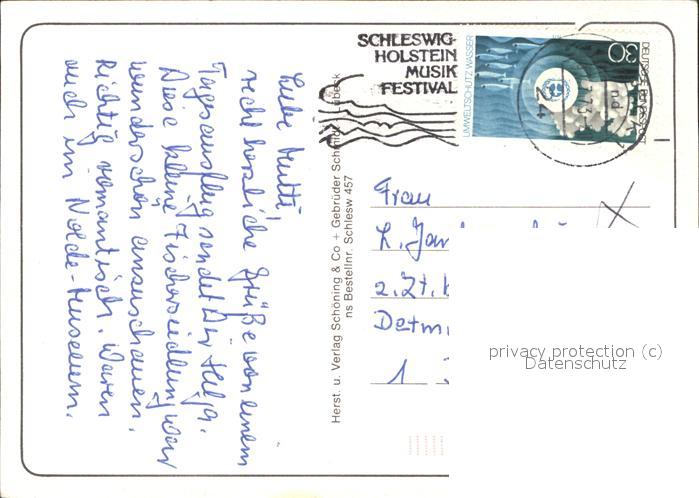 Liebe Mutti!
recht herzliche Grüße von einem
Tagesausflug sendet Dir Helga.
Diese kleine Fischersiedlung war
wunderschön anzuschauen.
Richtig romantisch. Waren
auch im Nolde-Museum.
Herst. u. Verlag Schöning & Co + Gebrüder Schmidt, Lübeck
ns Bestellnr. Schlesw 457
SCHLESWIG-
HOLSTEIN
MUSIK
FESTIVAL
UMWELTSCHUTZ WASSER
30
DEUTSCHE BUNDESPOST
Frau
z.Zt.
1
privacy protection (c)
Datenschutz